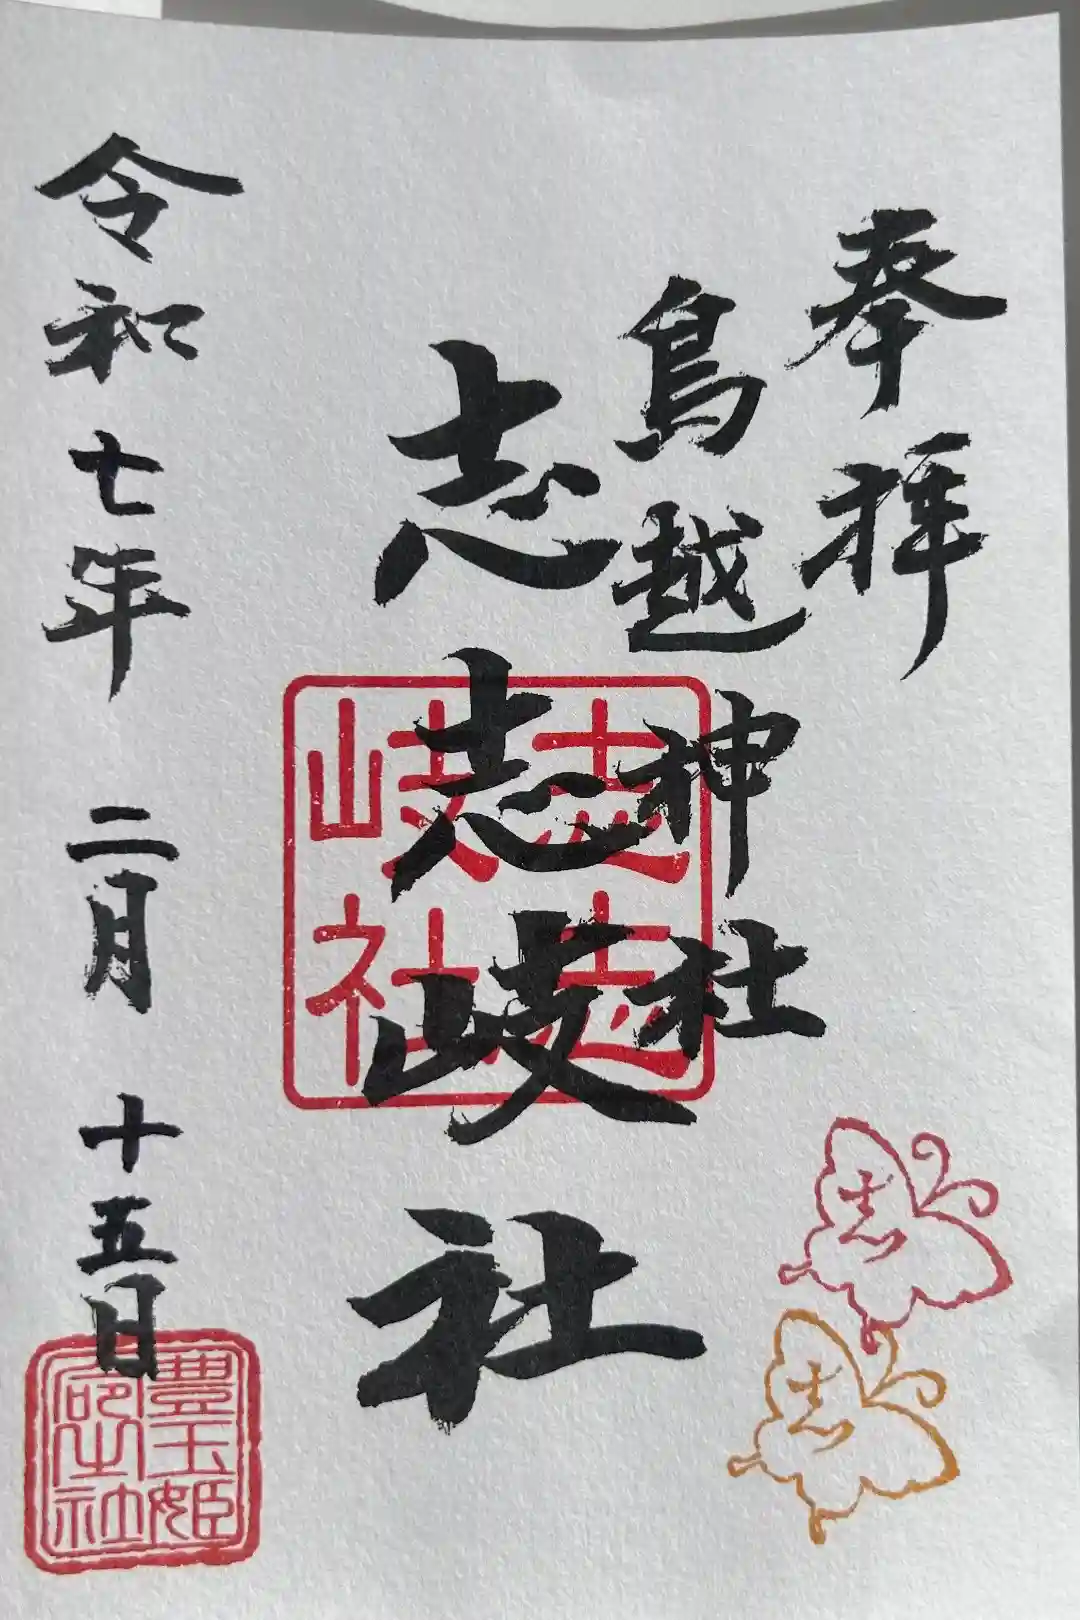 奉拝
鳥越神社
志志岐社
令和七年二月十五日
志志
岐社
豊玉姫
之社
志
志